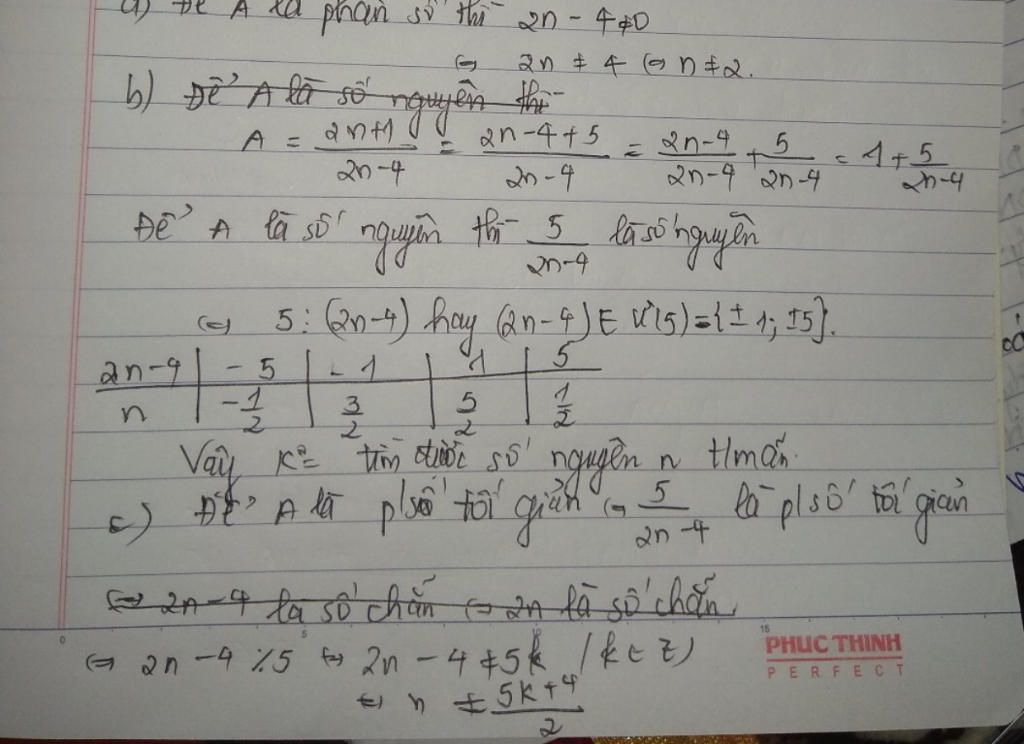 a) Để A là phân số thì 2n - 4 ≠ 0
⇔ 2n ≠ 4 ⇔ n ≠ 2.
b) Để A là số nguyên thì
A = (2n+1)/(2n-4) = (2n-4+5)/(2n-4) = (2n-4)/(2n-4) + 5/(2n-4) = 1 + 5/(2n-4)
Để A là số nguyên thì 5/(2n-4) là số nguyên
⇔ 5 ⋮ (2n-4) hay (2n-4) ∈ Ư(5) = {± 1; ±5}.
2n-4 | -5 | -1 | 1 | 5
n | -1/2 | 3/2 | 5/2 | 1/2
Vậy K² = tìm được số nguyên n t/mãn.
c) Để A là p/số tối giản ⇔ 5/(2n-4) là p/số tối giản
⇔ 2n-4 là số chẵn ⇔ 2n là số chẵn
⇔ 2n - 4 ⋮̸ 5 ⇔ 2n - 4 ≠ 5k (k ∈ Z)
⇔ n ≠ (5k+4)/2
0 5 15
PHUC THINH
PERFECT